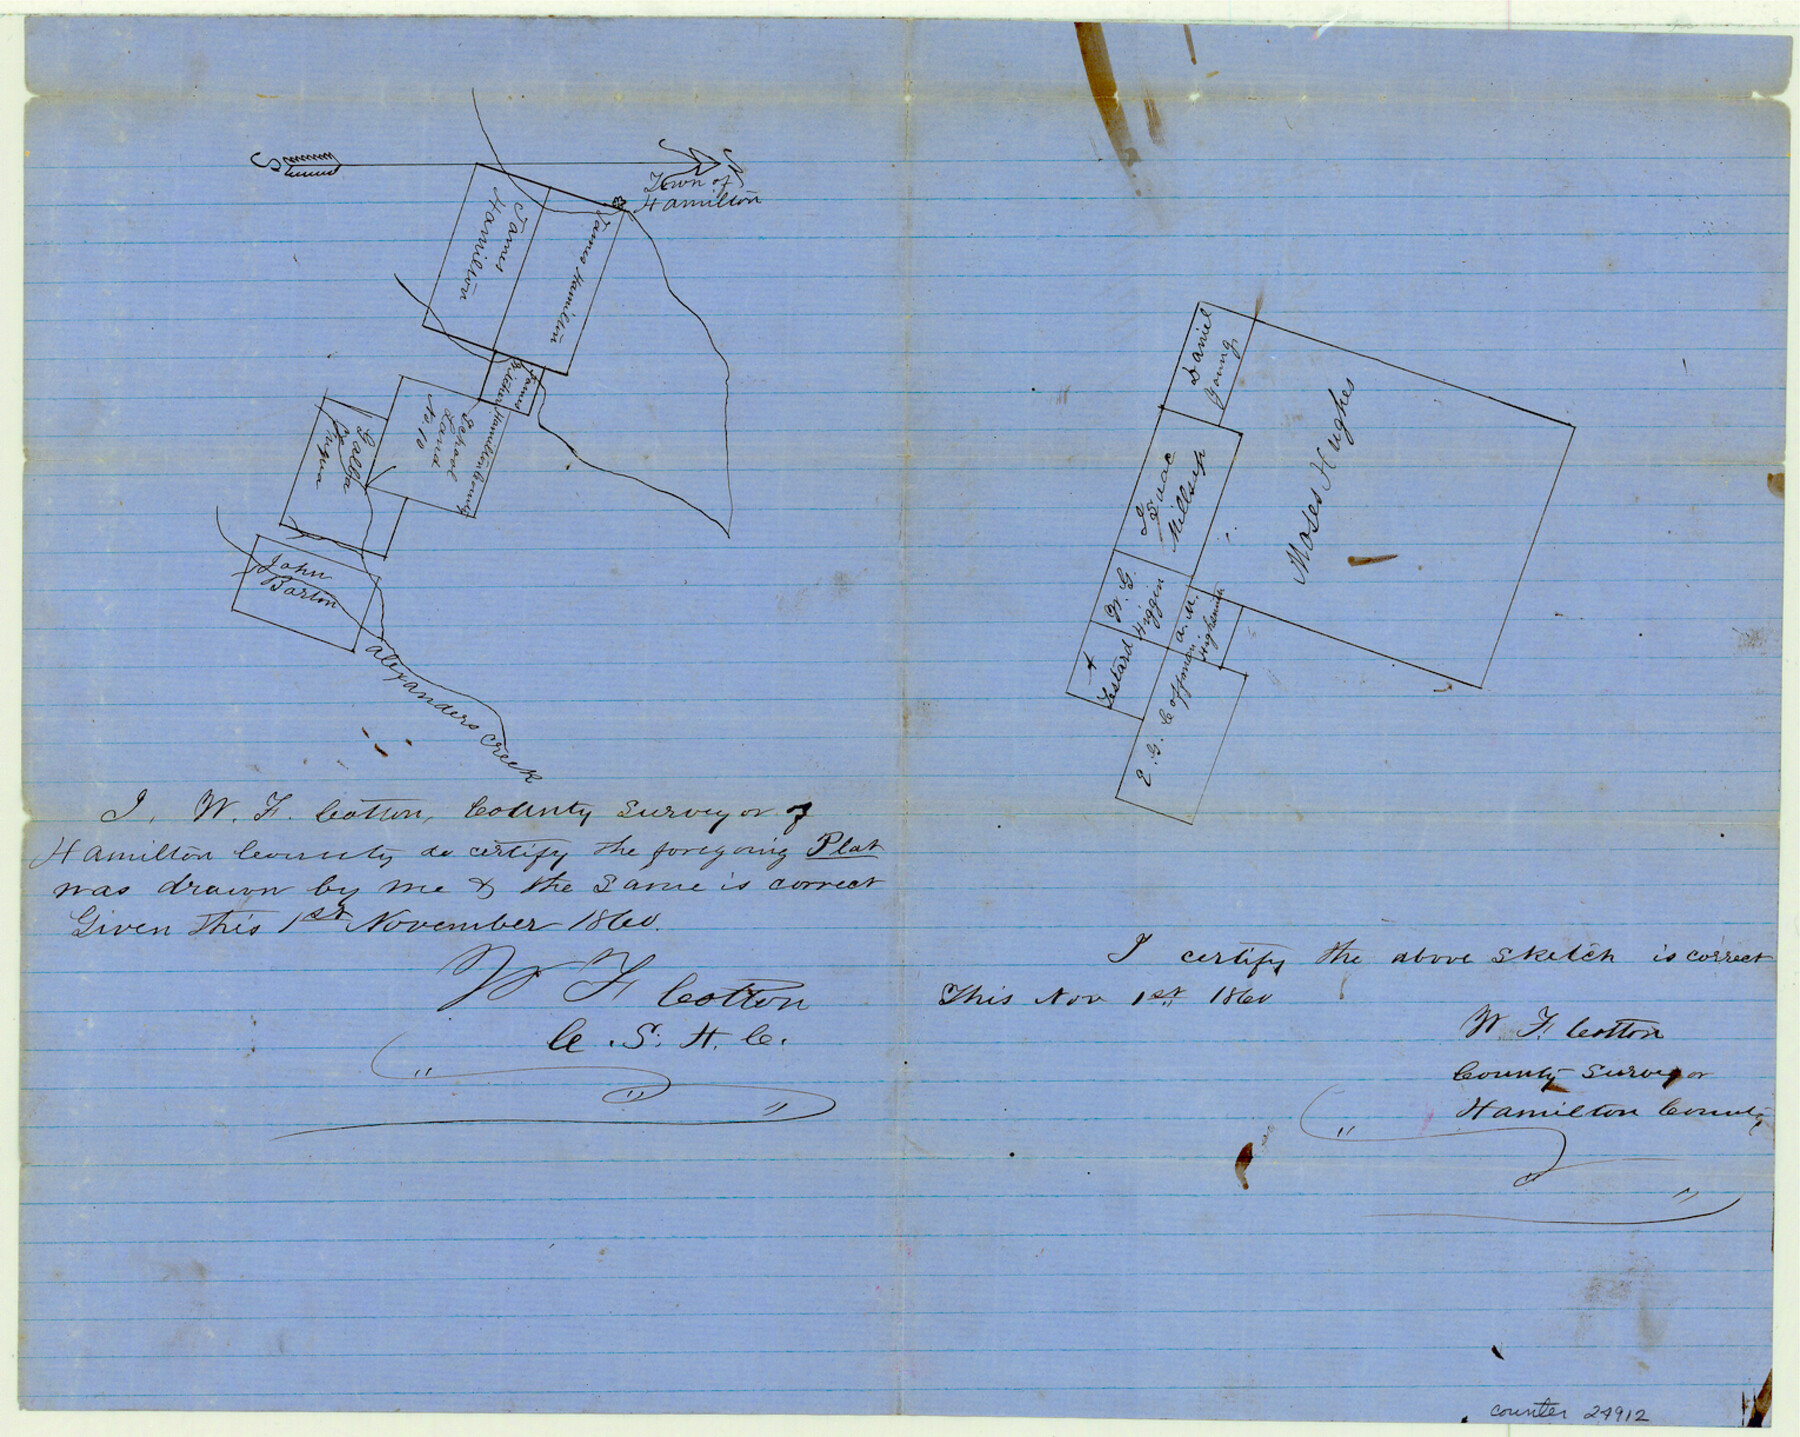 S
N
Town of
Hamilton
James
Hamilton
James Hamilton
James
Hamilton County
School
Land
No. 10
Galba
Fuqua
John
Barton
Alexanders Creek
I, W. F. Cotton, County Surveyor of
Hamilton County do certify the foregoing Plat
was drawn by me & the same is correct
Given this 1st November 1860.
W F Cotton
C. S. H. C.
Daniel
Young
Isaac
Millsep
Moses Hughes
W. G.
Higgin
A. M.
Highsmith
A
E. G. Coffman
I certify the above sketch is correct
This Nov 1st 1860
W. F. Cotton
County Surveyor
Hamilton County
counter 24912